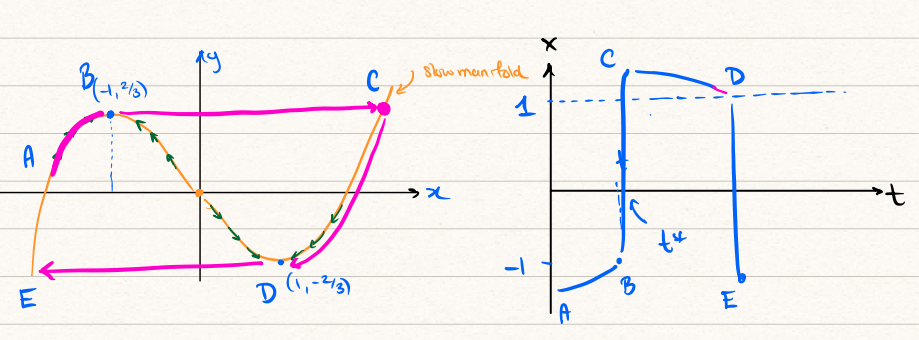 y
B(-1, 2/3)
C
slow manifold
A
x
E
D (1, -2/3)
x
C
D
1
t
t*
-1
B
A
E